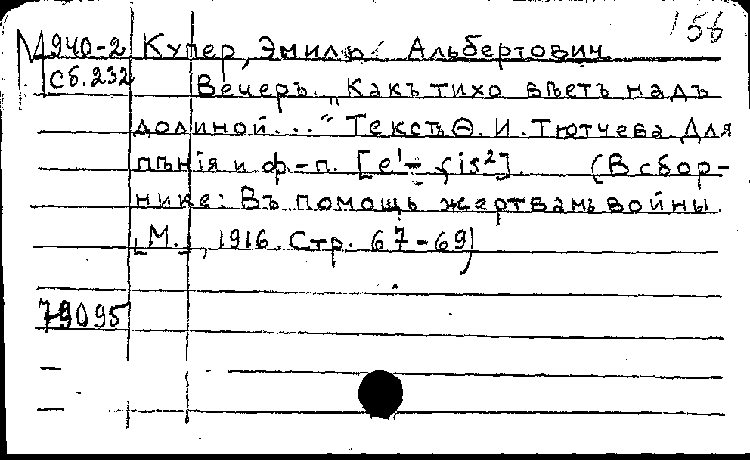 156
М 940-2 Купер, Эмиль Альбертович
Сб. 232 Вечеръ. „Какъ тихо вѣетъ надъ
долиной..." Текстъ Ѳ. И. Тютчева. Для
пѣнія и ф-п. [e¹-fis²]. (В сбор-
нике: Въ помощь жертвамъ войны.
[М.], 1916. Стр. 67-69)
79095